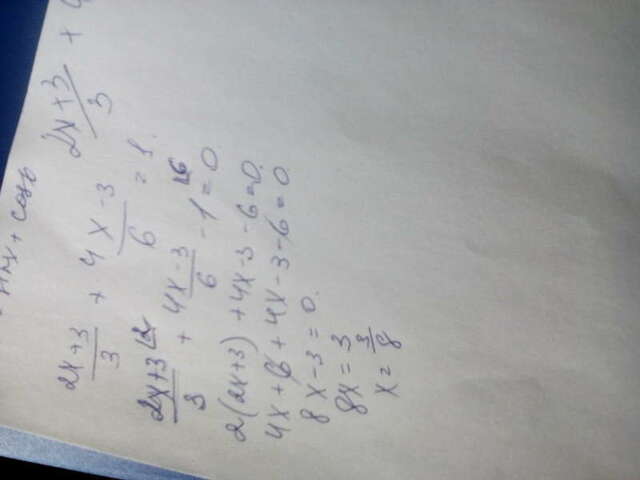 2x+3/3 + 4x-3/6 = 1.
2x+3/3 + 4x-3/6 - 1 = 0.
2(2x+3) + 4x-3-6=0.
4x+6+4x-3-6=0.
8x-3=0.
8x=3
x=3/8
2x+3/3 +